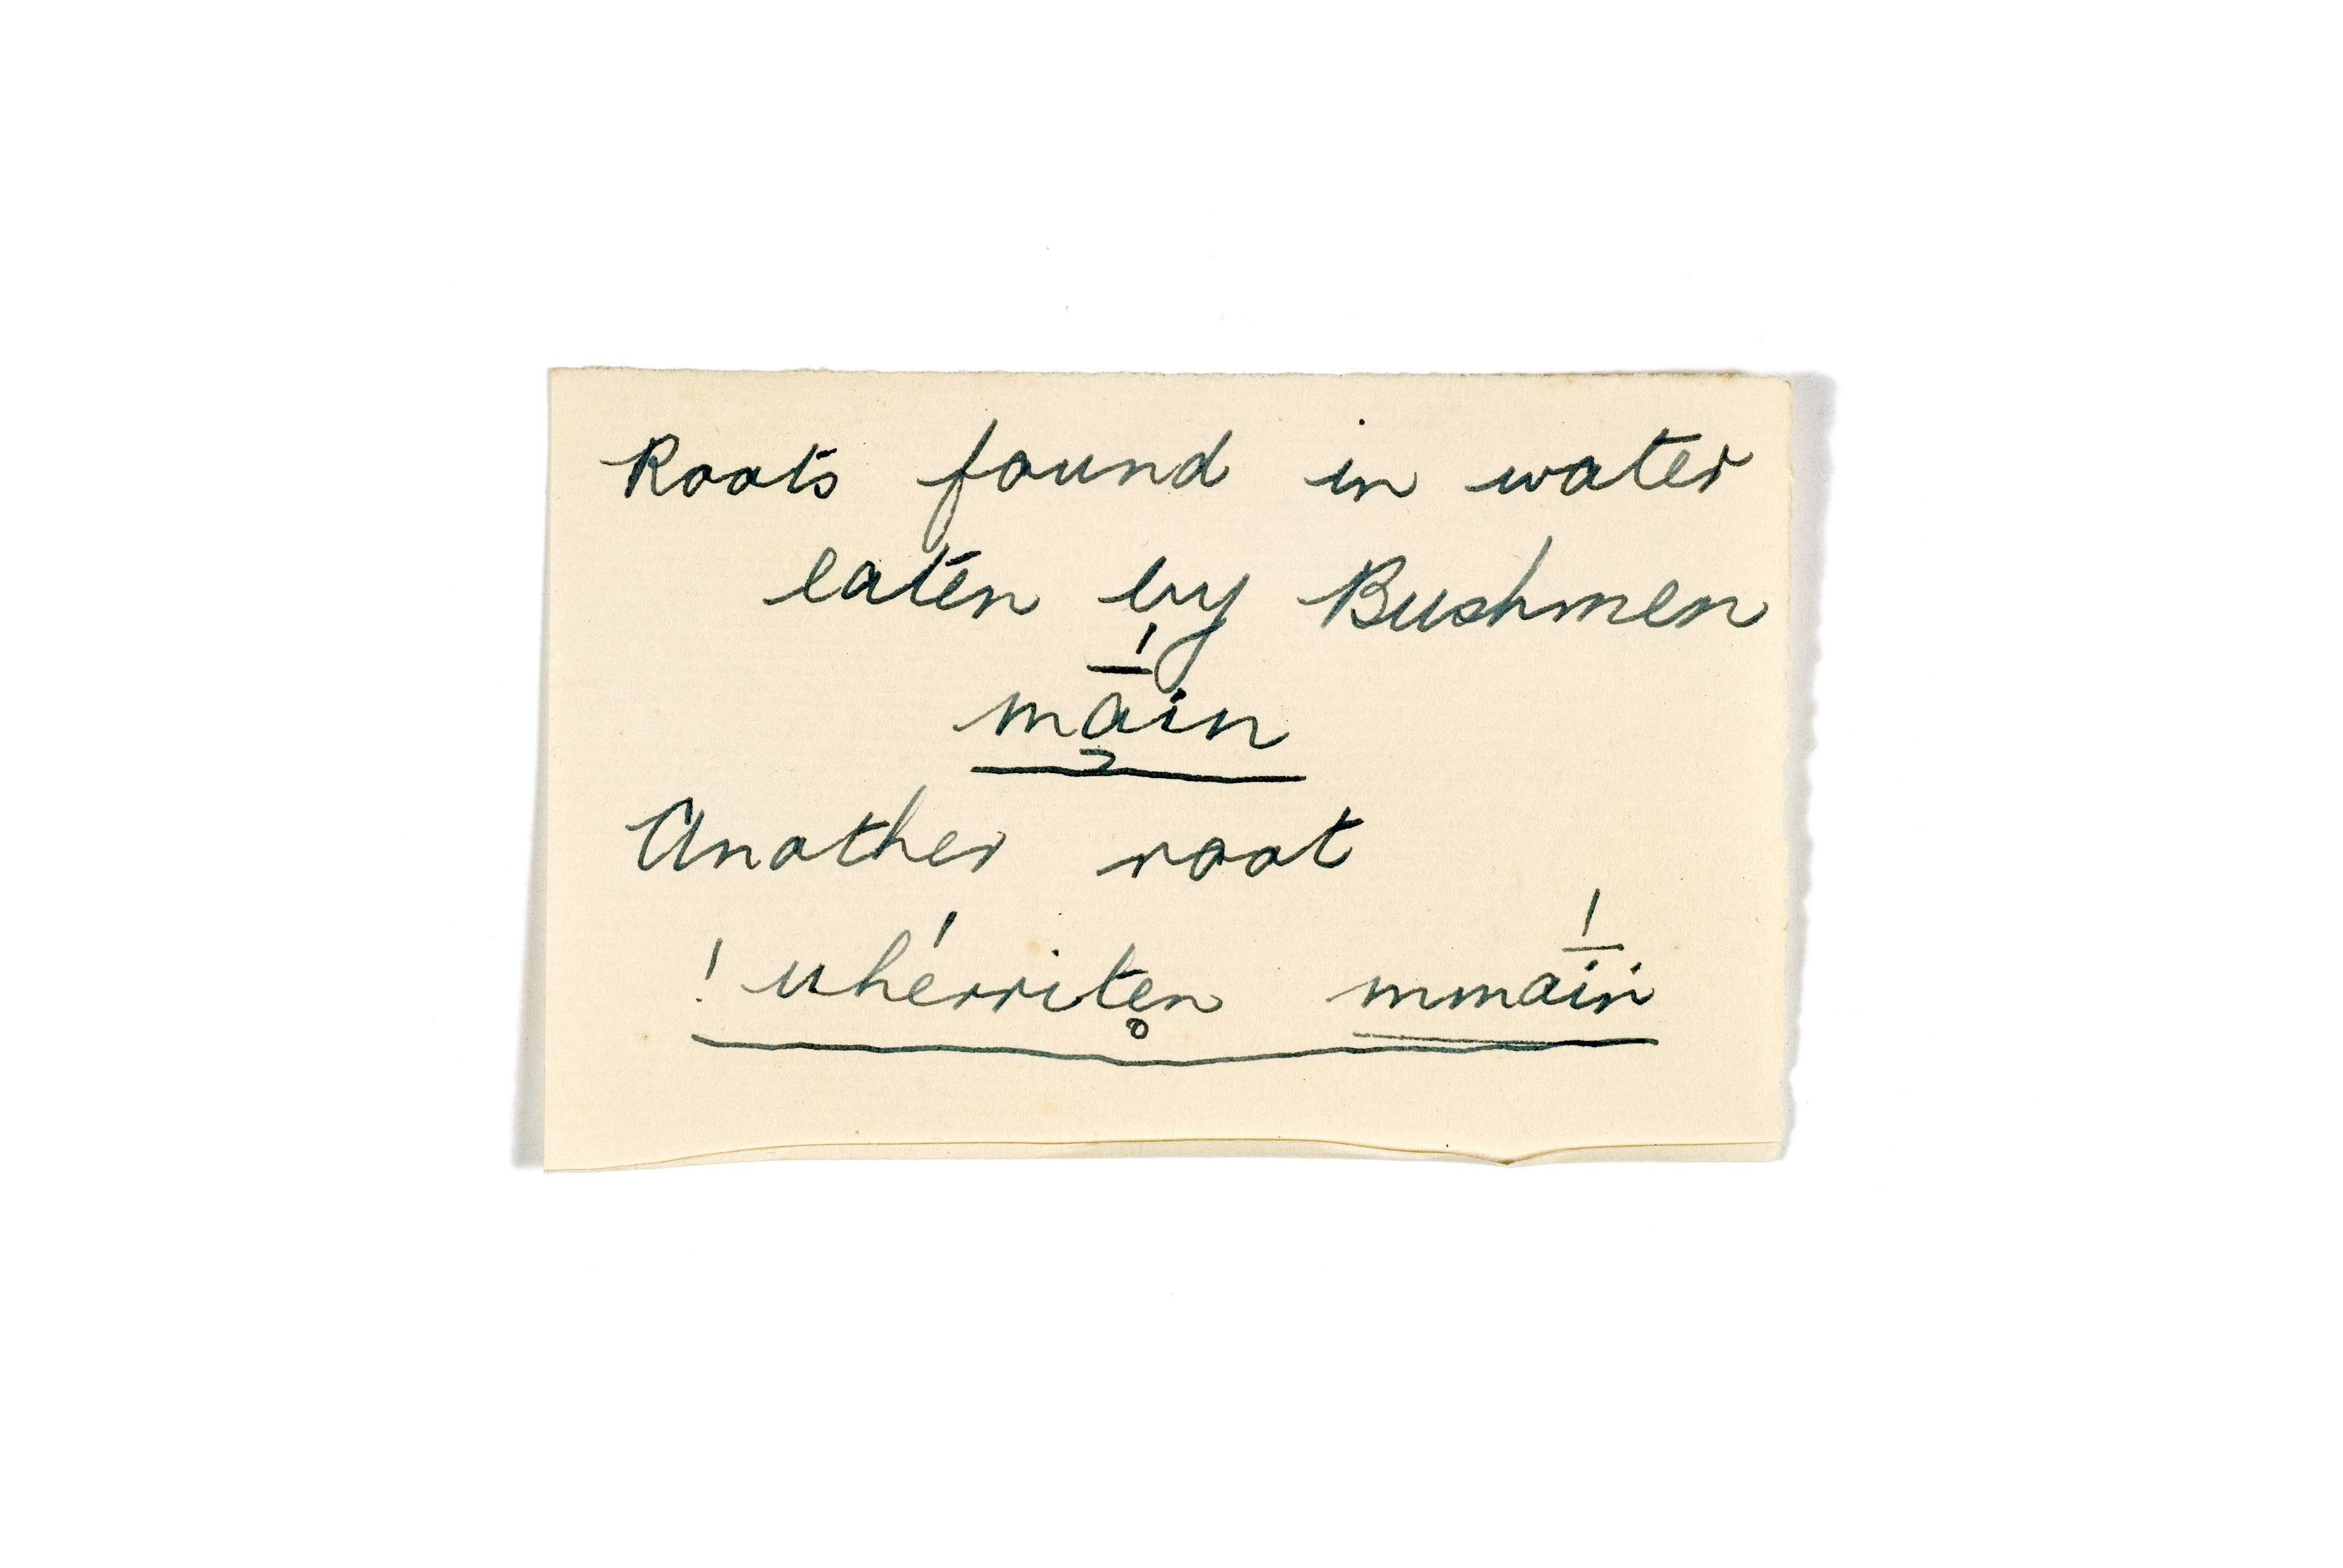 Roots found in water
eaten by Bushmen
mā́in
Another root
!uhérriten̥ mmā́in